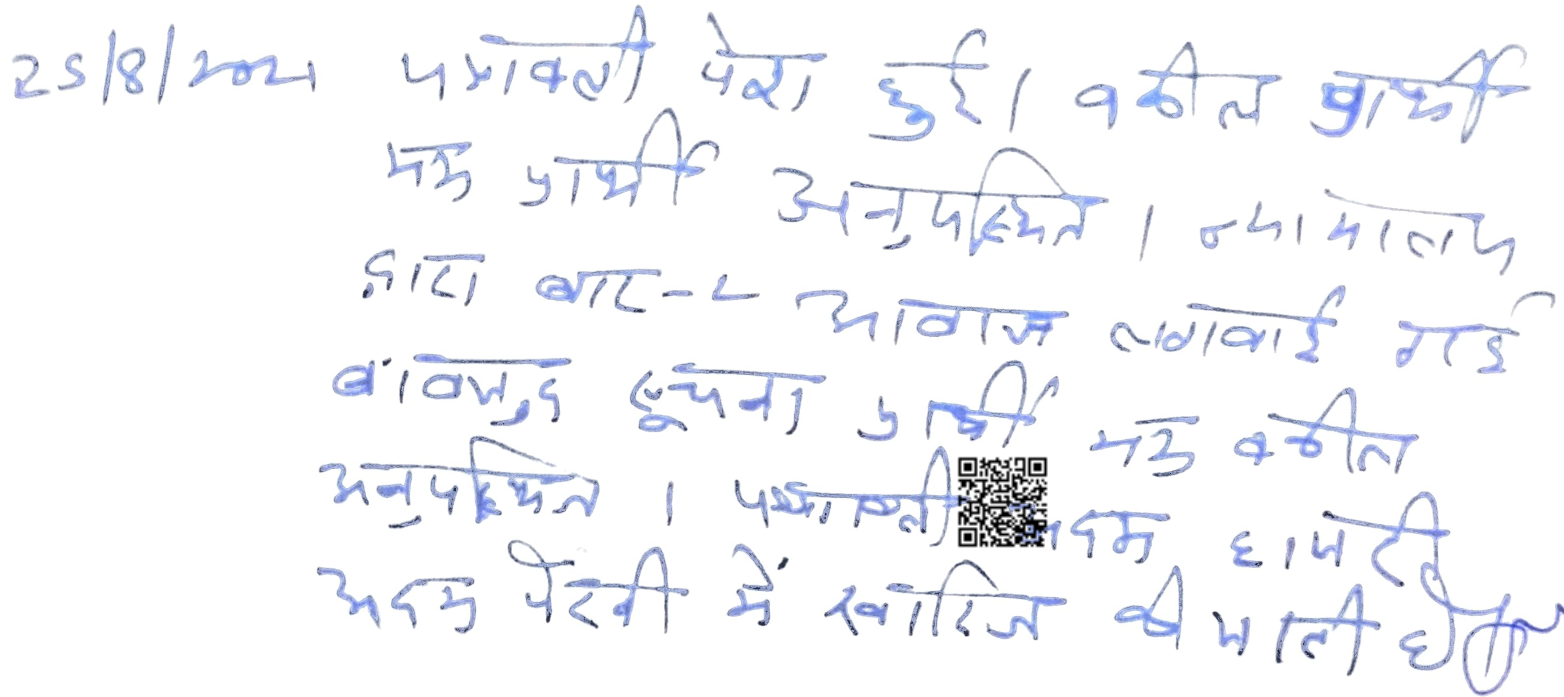 25/8/2021 पत्रावली पेश हुई। वकील प्रार्थी
मय प्रार्थी अनुपस्थित। न्यायालय
द्वारा बार-२ आवाज लगवाई गई
बावजूद सूचना प्रार्थी मय वकील
अनुपस्थित। पत्रावली अदम हाजरी
अदम पैरवी में खारिज की जाती है